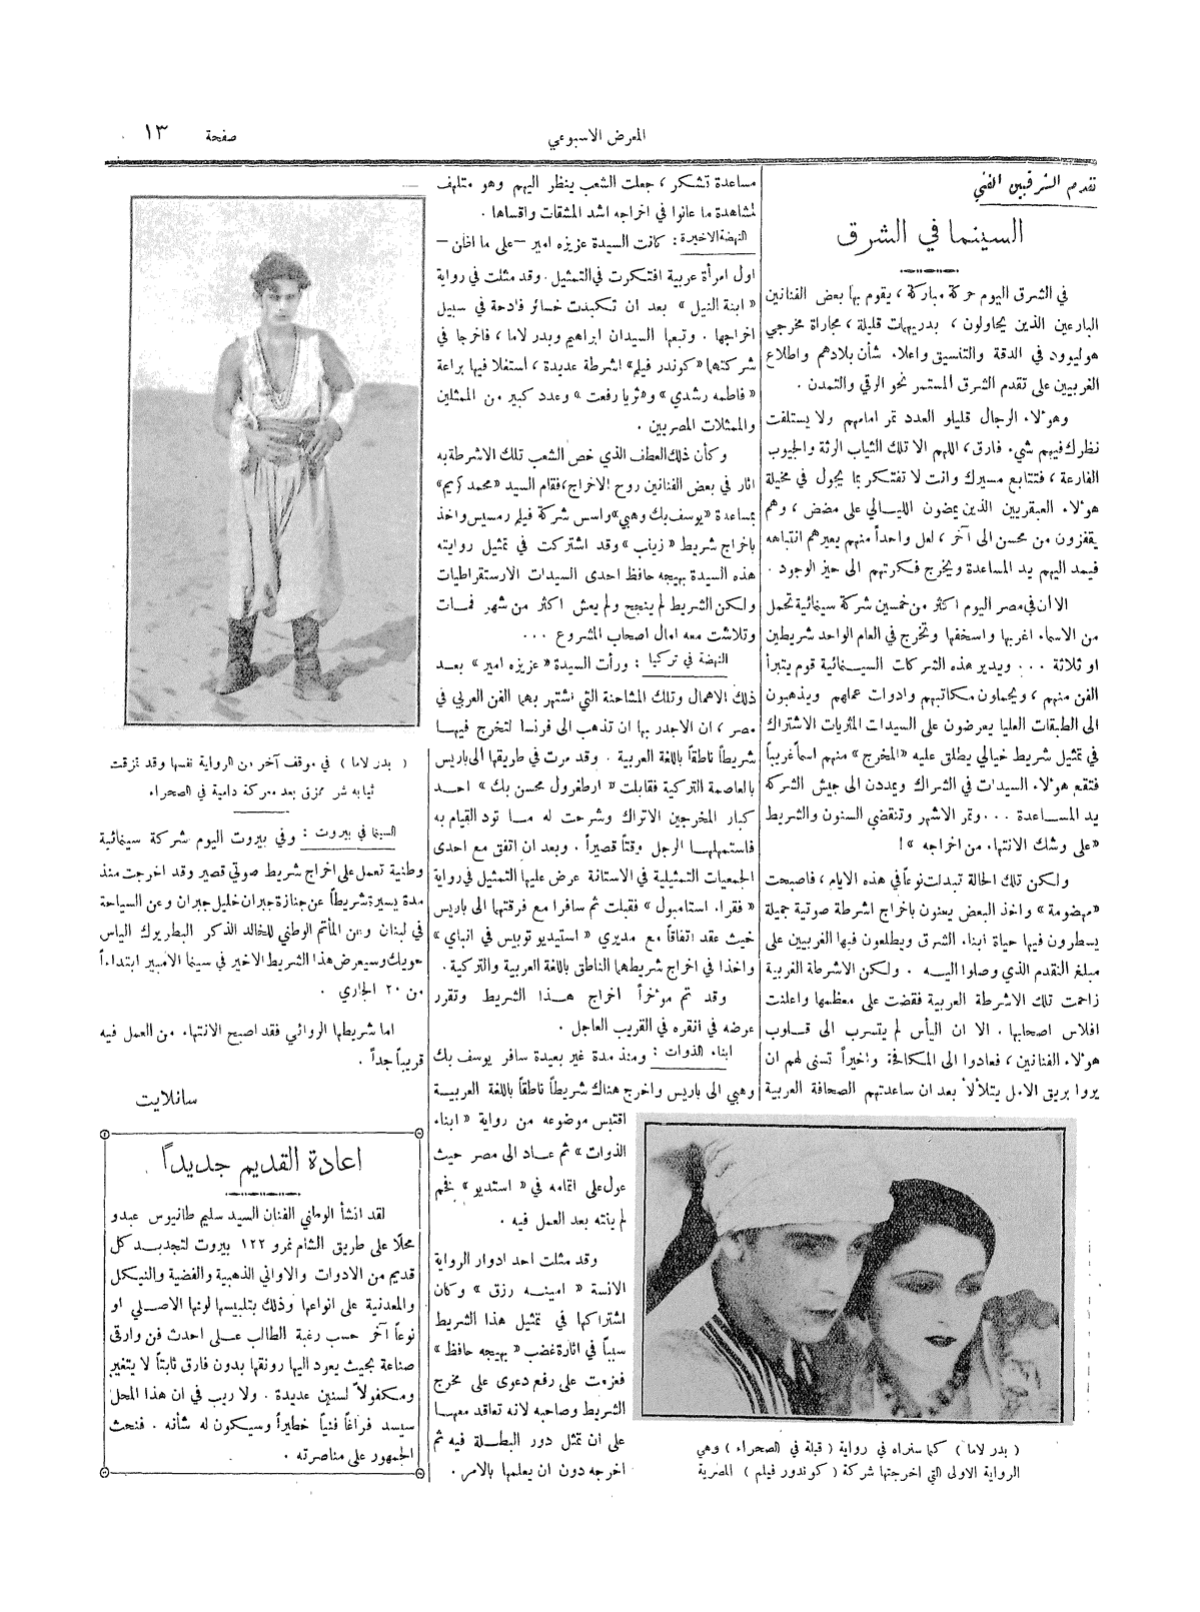 المعرض الاسبوعي
صفحة ١٣
تقدم الشرقيين الفني
السينما في الشرق
في الشرق اليوم حركة مباركة ، يقوم بها بعض الفنانين
البارعين الذين يحاولون ، بدريهمات قليلة ، مجاراة مخرجي
هوليوود في الدقة والتنسيق واعلاء شأن بلادهم واطلاع
الغربيين على تقدم الشرق المستمر نحو الرقي والتمدن .
وهؤلاء الرجال قليلو العدد تمر امامهم ولا يستلفت
نظرك فيهم شيء فارق ، اللهم الا تلك الثياب الرثة والجيوب
الفارغة ، فتتابع مسيرك وانت لا تفتكر بما يجول في مخيلة
هؤلاء العبقريين الذين يمضون الليالي على مضض ، وهم
يقفزون من محسن الى آخر ، لعل واحداً منهم يعيرهم انتباهه
فيمد اليهم يد المساعدة ويخرج فكرتهم الى حيز الوجود .
الا أن في مصر اليوم اكثر من خمسين شركة سينمائية تحمل
من الاسماء اغربها واسخفها وتخرج في العام الواحد شريطين
او ثلاثة . . . ويدير هذه الشركات السينمائية قوم يتبرأ
الفن منهم ، ويحملون مكاتبهم وادوات عملهم ويذهبون
الى الطبقات العليا يعرضون على السيدات المثريات الاشتراك
في تمثيل شريط خيالي يطلق عليه «المخرج» منهم اسماً غريباً
فتقع هؤلاء السيدات في الشراك ويمددن الى جيش الشركة
يد المساعدة . . . وتمر الاشهر وتنقضي السنون والشريط
«على وشك الانتهاء من اخراجه » !
ولكن تلك الحالة تبدلت نوعاً في هذه الايام ، فاصبحت
«مهضومة» واخذ البعض يعنون باخراج اشرطة صوتية جميلة
يسطرون فيها حياة ابناء الشرق ويطلعون فيها الغربيين على
مبلغ التقدم الذي وصلوا اليه . ولكن الاشرطة الغربية
زاحمت تلك الاشرطة العربية فقضت على معظمها واعلنت
افلاس اصحابها . الا ان اليأس لم يتسرب الى قلوب
هؤلاء الفنانين ، فعادوا الى المكافحة واخيراً تسنى لهم ان
يروا بريق الامل يتلألأ بعد ان ساعدتهم الصحافة العربية
( بدر لاما ) كما سنراه في رواية ( قبلة في الصحراء ) وهي
الرواية الاولى التي اخرجتها شركة ( كوندور فيلم ) المصرية
مساعدة تشكر ، جعلت الشعب ينظر اليهم وهو متلهف
لمشاهدة ما عانوا في اخراجه اشد المشقات واقساها .
النهضة الاخيرة : كانت السيدة عزيزه امير — على ما اظن —
اول امرأة عربية افتكرت في التمثيل . وقد مثلت في رواية
« ابنة النيل » بعد ان تكبدت خسائر فادحة في سبيل
اخراجها . وتبعها السيدان ابراهيم وبدر لاما ، فاخرجا في
شركتهما «كوندر فيلم» اشرطة عديدة ، استغلا فيها براعة
«فاطمه رشدي» و«ثريا رفعت» وعدد كبير من الممثلين
والممثلات المصريين .
وكأن ذلك العطف الذي خص الشعب تلك الاشرطة به
اثار في بعض الفنانين روح الاخراج ، فقام السيد «محمد كريم»
بمساعدة «يوسف بك وهبي» واسس شركة فيلم رمسيس واخذ
باخراج شريط «زينب» وقد اشتركت في تمثيل روايته
هذه السيدة بهيجه حافظ احدى السيدات الارستقراطيات
ولكن الشريط لم ينجح ولم يعش اكثر من شهر فمات
وتلاشت معه امال اصحاب المشروع . . .
النهضة في تركيا : ورأت السيدة «عزيزه امير» بعد
ذلك الاهمال وتلك المشاحنة التي اشتهر بهما الفن العربي في
مصر ، ان الاجدر بها ان تذهب الى فرنسا لتخرج فيها
شريطاً ناطقاً باللغة العربية . وقد مرت في طريقها الى باريس
بالعاصمة التركية فقابلت « ارطغرول محسن بك » احد
كبار المخرجين الاتراك وشرحت له ما تود القيام به
فاستمهلها الرجل وقتاً قصيراً . وبعد ان اتفق مع احدى
الجمعيات التمثيلية في الاستانة عرض عليها التمثيل في رواية
« فقراء استامبول » فقبلت ثم سافرا مع فرقتها الى باريس
حيث عقد اتفاقاً مع مديري « استيديو توبيس في انباي »
واخذا في اخراج شريطهما الناطق باللغة العربية والتركية .
وقد تم مؤخراً اخراج هذا الشريط وتقرر
عرضه في انقره في القريب العاجل .
ابناء الذوات : ومنذ مدة غير بعيدة سافر يوسف بك
وهبي الى باريس واخرج هناك شريطاً ناطقاً باللغة العربية
اقتبس موضوعه من رواية « ابناء
الذوات » ثم عاد الى مصر حيث
عول على اتمامه في « استديو » فخم
لم ينته بعد العمل فيه .
وقد مثلت احد ادوار الرواية
الانسة « امينه رزق » وكان
اشتراكها في تمثيل هذا الشريط
سبباً في اثارة غضب «بهيجه حافظ»
فعزمت على رفع دعوى على مخرج
الشريط وصاحبه لانه تعاقد معها
على ان تمثل دور البطلة فيه ثم
اخرجه دون ان يعلمها بالامر .
( بدر لاما ) في موقف آخر من الرواية نفسها وقد تمزقت
ثيابه شر ممزق بعد معركة دامية في الصحراء
السينما في بيروت : وفي بيروت اليوم شركة سينمائية
وطنية تعمل على اخراج شريط صوتي قصير وقد اخرجت منذ
مدة يسيرة شريطاً عن جنازة جبران خليل جبران وعن السياحة
في لبنان وعن المأتم الوطني للخالد الذكر البطريرك الياس
حويك وسيعرض هذا الشريط الاخير في سينما الامبير ابتداءاً
من ٢٠ الجاري .
اما شريطها الروائي فقد اصبح الانتهاء من العمل فيه
قريباً جداً .
سانلايت
اعادة القديم جديداً
لقد انشأ الوطني الفنان السيد سليم طانيوس عبدو
محلاً على طريق الشام نمرو ١٢٢ بيروت لتجديد كل
قديم من الادوات والاواني الذهبية والفضية والنيكل
والمعدنية على انواعها وذلك بتلبيسها لونها الاصلي او
نوعاً آخر حسب رغبة الطالب على احدث فن وارقى
صناعة بحيث يعود اليها رونقها بدون فارق ثابتاً لا يتغير
ومكفولاً لسنين عديدة . ولا ريب في ان هذا المحل
سيسد فراغاً فنياً خطيراً وسيكون له شأنه . فنحث
الجمهور على مناصرته .